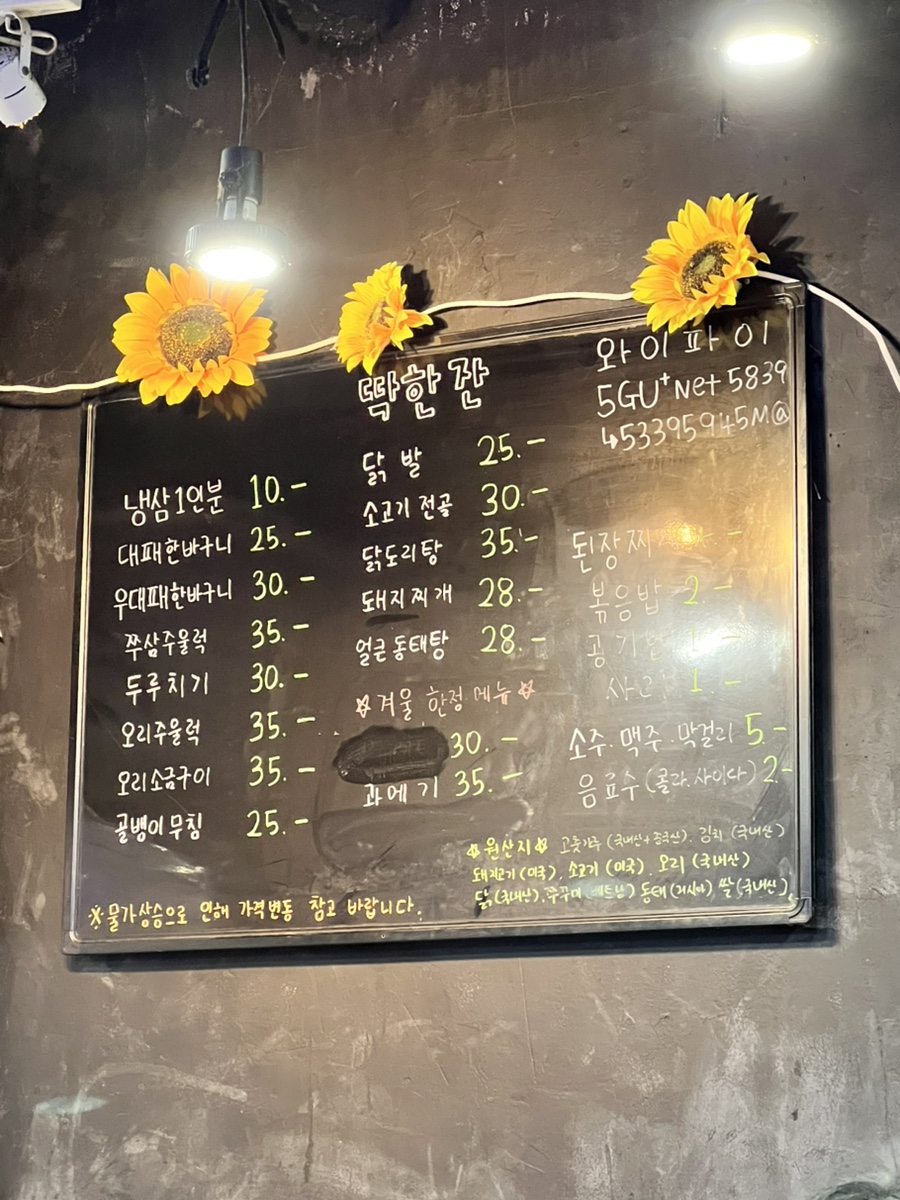 딱한잔
와이파이
5GU+Net 5839
↳53395945M@
냉삼1인분 10.-
대패한바구니 25.-
우대패한바구니 30.-
쭈삼주울럭 35.-
두루치기 30.-
오리주울럭 35.-
오리소금구이 35.-
골뱅이무침 25.-
닭발 25.-
소고기 전골 30.-
닭도리탕 35.-
돼지찌개 28.-
얼큰동태탕 28.-
겨울 한정 메뉴
30.-
과에기 35.-
된장찌 -
볶음밥 2.-
공기 1.-
사리 1.-
소주.맥주.막걸리 5.-
음료수(콜라.사이다) 2.-
원산지 고춧가루 (국내산+중국산). 김치 (국내산)
돼지고기(미국), 소고기 (미국). 오리 (국내산)
닭(국내산).쭈꾸미 (베트남) 동태(러시아) 쌀(국내산)
※물가상승으로 인해 가격변동 참고 바랍니다.